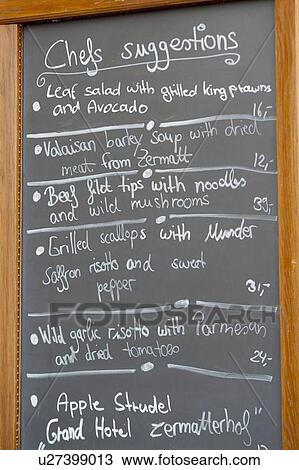 Chefs suggestions
Leaf salad with grilled kingprawns
and Avocado 16,-
Valaisan barley soup with dried
meat from Zermatt 12,-
Beef filet tips with noodles
and wild mushrooms 39,-
Grilled scallops with Munder
Saffron risotto and sweet
pepper 31,-
Wild garlic risotto with Parmesan
and dried tomatoes 24,-
Apple Strudel
"Grand Hotel Zermatterhof"
© Fotosearch
FOTOSEARCH
u27399013 fotosearch.com